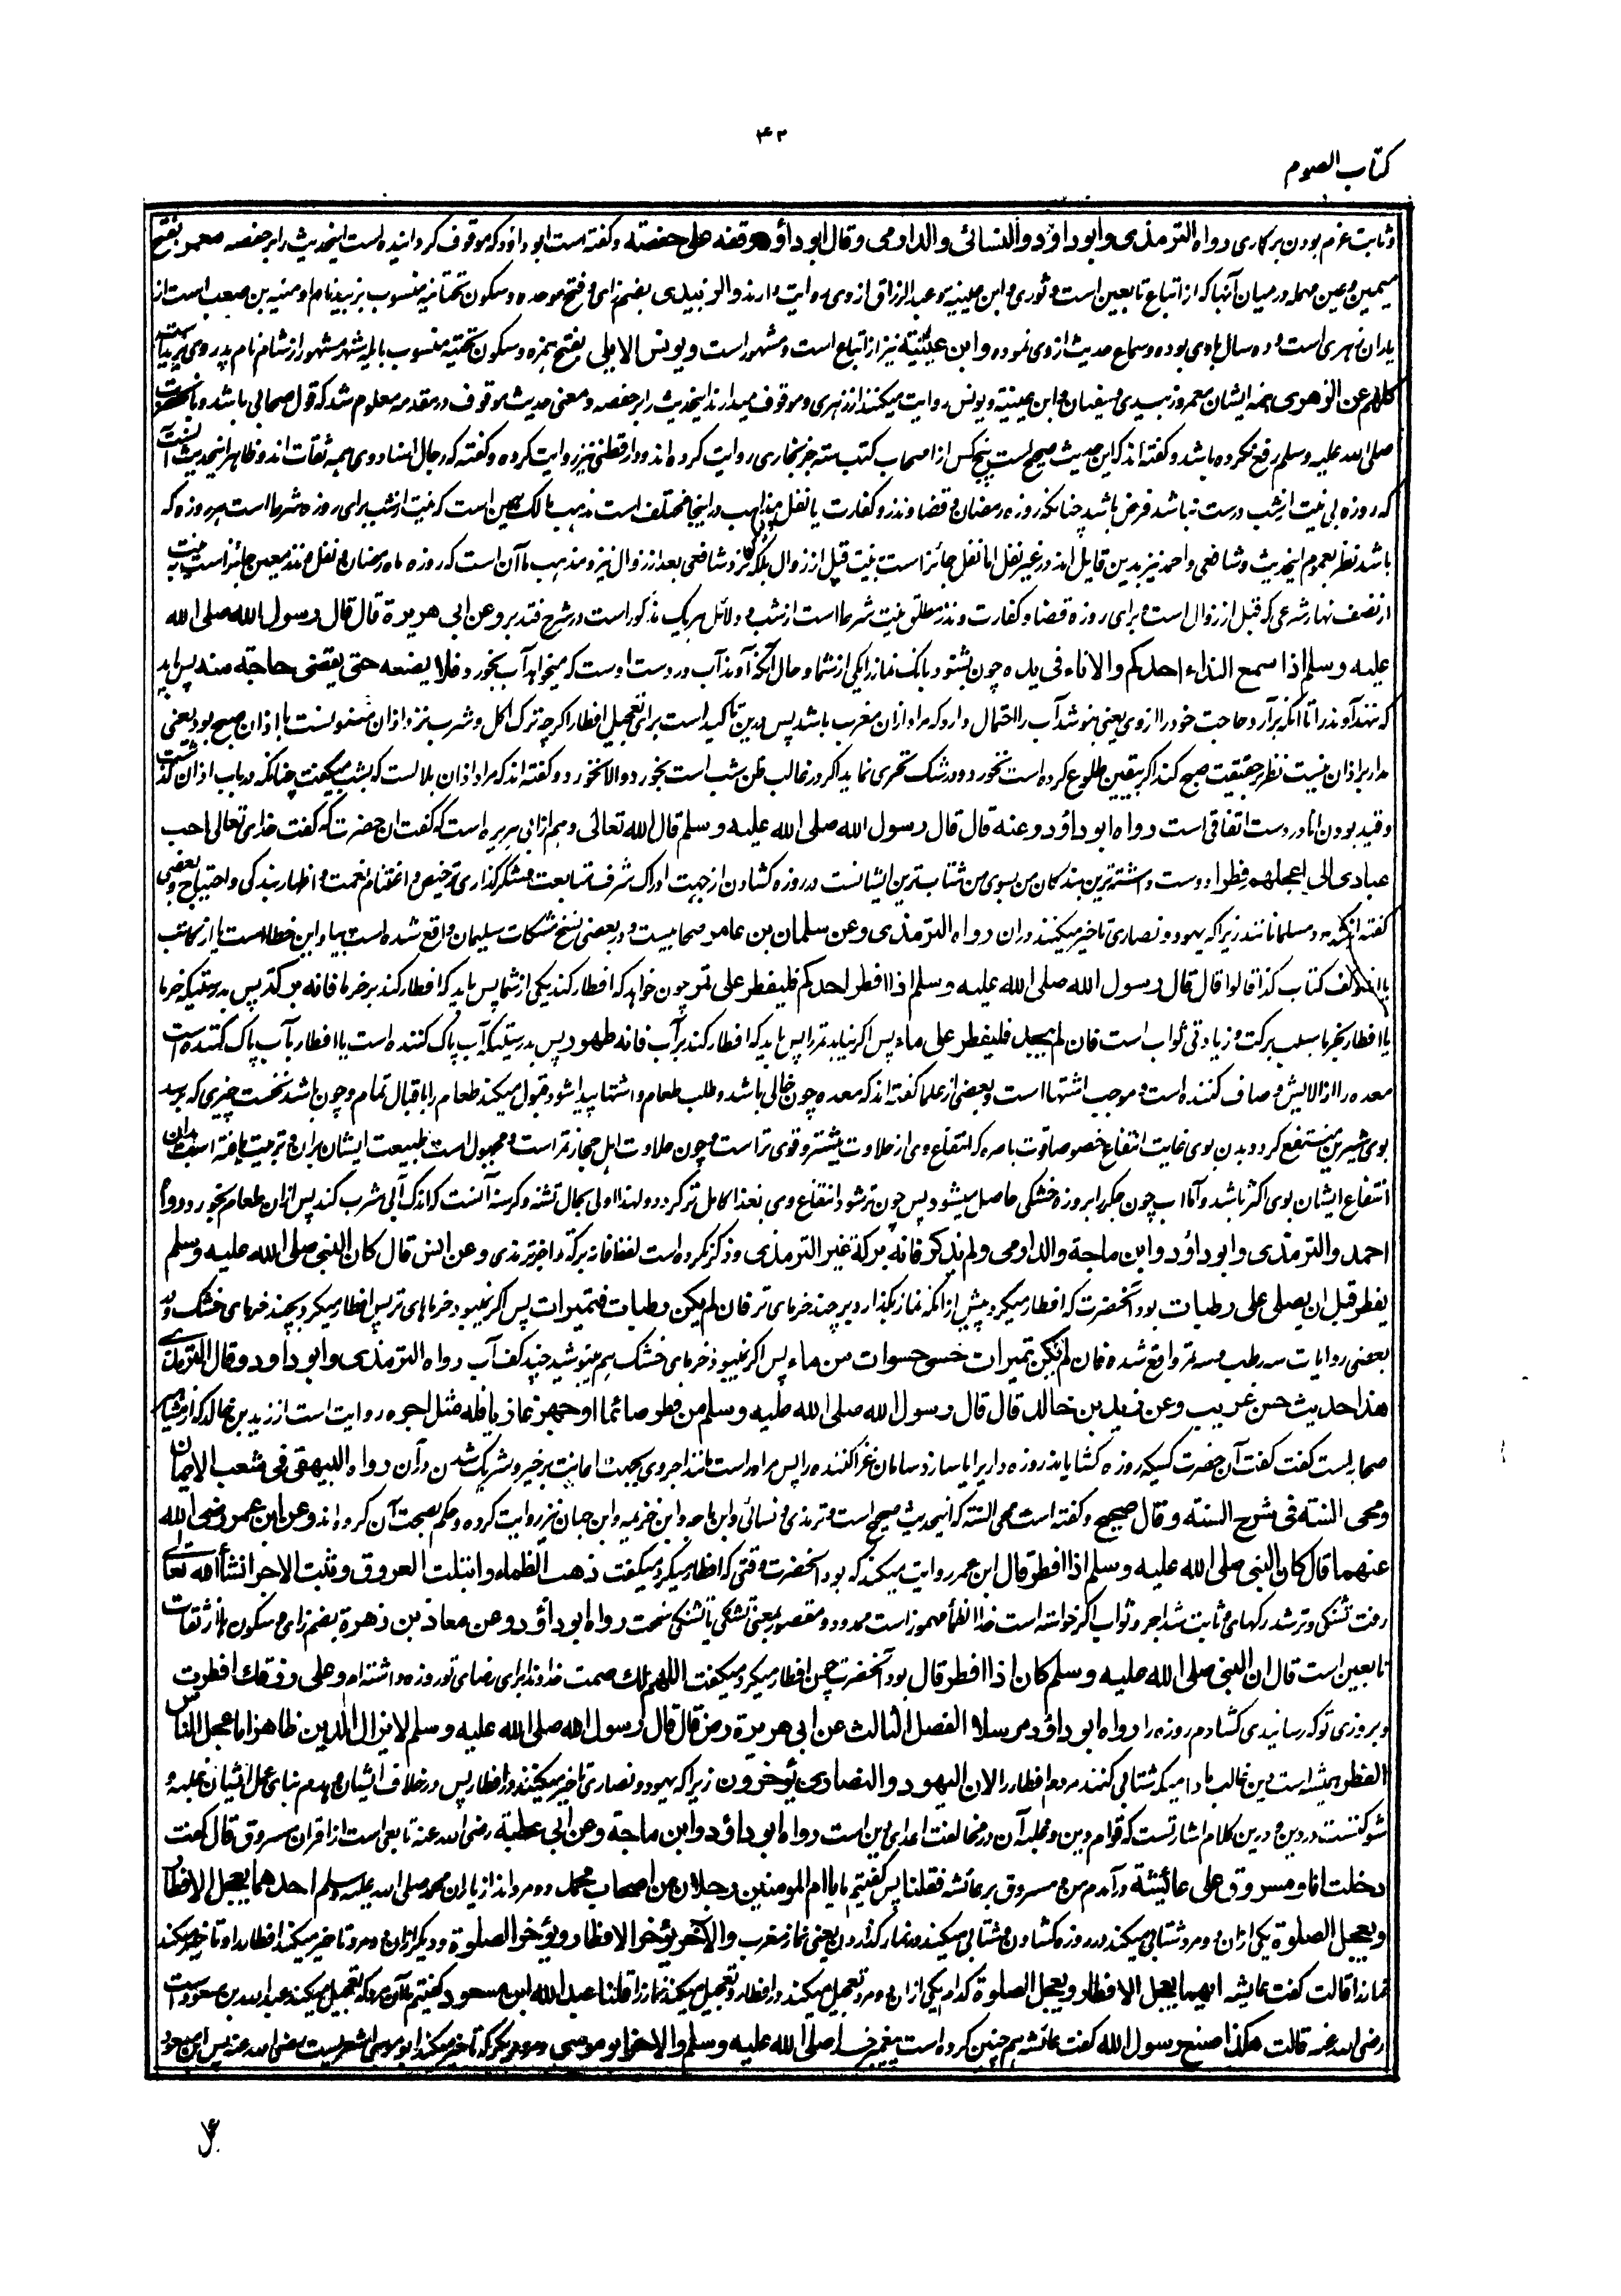 ۴۲
کتاب الصوم
وثابت عزم بودن بر کاری رواه الترمذی وابوداؤد والنسائی والدارمی وقال ابوداؤد وقفه علی حفصته وگفته است ابوداؤد که موقوف گردانیده است اینحدیث را بر حفصه معمر بفتح
میمین وعین مهمله درمیان آنها که از اتباع تابعین است وثوری وابن عیینه وعبدالرزاق از وی روایت دارند والزبیدی بضم زای وفتح موحده وسکون تحتانیه منسوب بزبید نام او منبه بن صعب است از
یاران زهری است وده سال باوی بوده وسماع حدیث از وی نموده وابن عیینه نیز از اتباع است ومشهور است ویونس الایلی بفتح همزه وسکون تحتیه منسوب بایله شهر مشهور از شام نام پدر وی یزید است
کلهم عن الزهری همه ایشان معمر وزبیدی وسفیان وابن عیینه ویونس روایت میکنند از زهری وموقوف میدارند اینحدیث را بر حفصه ومعنی حدیث موقوف در مقدمه معلوم شد که قول صحابی باشد
صلی الله علیه وسلم رفع نکرده باشد وگفته اند که این حدیث صحیح است پنج کس از اصحاب کتب سته جز بخاری روایت کرده اند ودارقطنی نیز روایت کرده وگفته که رجال اسناد وی همه ثقات اند وظاهر اینحدیث آنست
که روزه بی نیت از شب درست نباشد فرض باشد چنانکه روزه رمضان وقضا ونذر وکفارت یا نفل ومذاهب در اینجا مختلف است مذهب مالک همین است که نیت از شب برای روزه شرط است هر روزه که
باشد نظر بعموم اینحدیث وشافعی واحمد نیز بدین قایل اند در غیر نفل اما نفل جائز است به نیت قبل از زوال بلکه نزد شافعی بعد از زوال نیز ومذهب ما آن است که روزه ماه رمضان ونفل ونذر معین جائز است به نیت
از نصف نهار شرعی که قبل از زوال است وبرای روزه قضا وکفارت ونذر مطلق نیت شرط است از شب ودلائل هر یک مذکور است در شرح فتدبر وعن ابی هریرة قال قال رسول الله صلی الله
علیه وسلم اذا سمع النداء احدکم والاناء فی یده چون بشنود بانگ نماز را یکی از شما وحال آنکه آوند آب در دست اوست که میخواهد آب بخورد فلا یضعه حتی یقضی حاجته منه پس باید
که ننهد آوند را تا آنکه برآرد حاجت خود را از وی یعنی بنوشد آب را احتمال دارد که مراد اذان مغرب باشد پس درین تاکید است برای تعجیل افطار اگرچه ترک اکل وشرب نزد اذان مسنونست یا اذان صبح بود یعنی
مدار بر اذان نیست نظر بر حقیقت صبح کند اگر بیقین طلوع کرده است نخورد ودر شک تحری نماید اگر در غالب ظن شب است بخورد والا نخورد وگفته اند که مراد اذان بلال است که بشب میگفت چنانکه در باب اذان گذشت
وقید بودن انا در دست اتفاقی است رواه ابوداؤد وعنه قال قال رسول الله صلی الله علیه وسلم قال الله تعالی وهم از ابی هریره است که گفت آن حضرت که گفت خدای تعالی احب
عبادی الی اعجلهم فطرا دوست داشته ترین بندگان من بسوی من شتاب ترین ایشانست در روزه گشادن از جهت ادراک شرف متابعت وشکرگذاری ترخیص واغتنام نعمت واظهار بندگی واحتیاج وبعضی
گفته اند مسلمانانند زیرا که یهود ونصاری تاخیر میکنند دران رواه الترمذی وعن سلمان بن عامر صحابیست ودر بعضی نسخ مشکات سلیمان واقع شده است بیا واین خطا است یا از کاتب
یا از مؤلف کتاب کذا قالوا قال قال رسول الله صلی الله علیه وسلم اذا افطر احدکم فلیفطر علی تمر چون خواهد که افطار کند یکی از شما پس باید که افطار کند بر خرما فانه برکة پس بدرستیکه خرما
یا افطار بخرما سبب برکت وزیادتی ثواب است فان لم یجد فلیفطر علی ماء پس اگر نیابد تمر را پس باید که افطار کند بر آب فانه طهور پس بدرستیکه آب پاک کننده است یا افطار بآب پاک کننده است
معده را از آلایش وصاف کننده است وموجب اشتها است وبعضی از علما گفته اند که معده چون خالی باشد وطلب طعام واشتها پیدا شود قبول میکند طعام را باقبال تمام وچون باشد نخست چیزی که برسد
بوی شیرین منتفع گردد بدن بوی غایت انتفاع خصوصا قوت باصره که انتفاع وی از حلاوت بیشتر وقوی تر است وچون حلاوت اهل حجاز تمر است ومجبول است طبیعت ایشان بران وتربیت یافته است بدان
انتفاع ایشان بوی اکثر باشد واما آب چون جگر را بروزه خشکی حاصل میشود پس چون تر شود انتفاع وی بغذا کامل تر گردد ولهذا اولی بحال تشنه وگرسنه آنست که اندک آبی شرب کند پس ازان طعام بخورد رواه
احمد والترمذی وابوداؤد وابن ماجة والدارمی ولم یذکر فانه برکة غیر الترمذی وذکر نکرده است لفظ فانه برکة را جز ترمذی وعن انس قال کان النبی صلی الله علیه وسلم
یفطر قبل ان یصلی علی رطبات بود آنحضرت که افطار میکرد پیش از آنکه نماز بگذارد بر چند خرمای تر فان لم یکن رطبات فتمیرات پس اگر نمیبود خرماهای تر پس افطار میکرد بچند خرمای خشک ودر
بعضی روایات سه رطب وسه تمر واقع شده فان لم یکن تمیرات حسی حسوات من ماء پس اگر نمیبود خرمای خشک هم مینوشید چند کف آب رواه الترمذی وابوداود وقال الترمذی
هذا حدیث حسن غریب وعن زید بن خالد قال قال رسول الله صلی الله علیه وسلم من فطر صائما او جهز غازیا فله مثل اجره روایت است از زید بن خالد که از مشاهیر
صحابه است گفت گفت آن حضرت کسیکه روزه گشایاند روزه دار یرا یا سازد سامان غزا کننده را پس مر او راست مانند اجر وی بجهت اعانت بر خیر وشریک شدن دران رواه البیهقی فی شعب الایمان
ومحی السنة فی شرح السنة وقال صحیح وگفته است محی السنة که اینحدیث صحیح است وترمذی ونسائی وابن ماجه وابن خزیمه وابن حبان نیز روایت کرده وحکم بصحت آن کرده اند وعن ابن عمر رضی الله
عنهما قال کان النبی صلی الله علیه وسلم اذا افطر قال ابن عمر روایت میکند که بود آنحضرت وقتی که افطار میکرد میگفت ذهب الظماء وابتلت العروق وثبت الاجر انشأ الله تعالی
رفت تشنگی وتر شد رگهای وثابت شد اجر وثواب اگر خواسته است خدا ظمأ مهموز است ممدود ومقصور بمعنی تشنگی یا تشنگی سخت رواه ابوداؤد وعن معاذ بن زهرة بضم زای وسکون ها از ثقات
تابعین است قال ان النبی صلی الله علیه وسلم کان اذا افطر قال بود آنحضرت چون افطار میکرد میگفت اللهم لک صمت خداوندا برای رضای تو روزه داشته ام وعلی رزقک افطرت
وبروزی تو که رسانیدی گشادم روزه را رواه ابوداؤد مرسلا الفصل الثالث عن ابی هریرة رض قال قال رسول الله صلی الله علیه وسلم لا یزال الدین ظاهرا ما عجل الناس
الفطر همیشه است دین غالب مادامیکه شتابی کنند مردم افطار را لان الیهود والنصاری یؤخرون زیرا که یهود ونصاری تاخیر میکنند در افطار پس در خلاف ایشان وهدم بنای عمل ایشان غلبه و
شوکتست در دین ودرین کلام اشارتست که قوام دین وغلبه آن در مخالفت اعدای دین است رواه ابوداؤد وابن ماجة وعن ابی عطیة رضی الله عنه تابعی است از اقران مسروق قال گفت
دخلت انا ومسروق علی عائیشة درآمدم من ومسروق بر عائشه فقلنا پس گفتیم ما یا ام المومنین رجلان من اصحاب محمد دو مرد اند از یاران محمد صلی الله علیه وسلم احدهما یعجل الافطار
ویعجل الصلوة یکی ازان دو مرد شتابی میکند در روزه گشادن وشتابی میکند در نماز گذاردن یعنی نماز مغرب والآخر یؤخر الافطار ویؤخر الصلوة ودیگر ازان دو مرد تاخیر میکند افطار را وتاخیر میکند
نماز را قالت گفت عایشه ایهما یعجل الافطار ویعجل الصلوة کدام یکی از ان دو مرد تعجیل میکند در افطار وتعجیل میکند نماز را قلنا عبدالله ابن مسعود گفتیم ما آن مرد که تعجیل میکند عبدالله بن مسعود است
رضی الله عنه قالت هکذا صنع رسول الله گفت عائشه همچنین کرده است پیغمبر خدا صلی الله علیه وسلم والاخر ابو موسی ومرد دیگر که تاخیر میکند ابو موسی اشعریست رضی الله عنه پس ابن مسعود